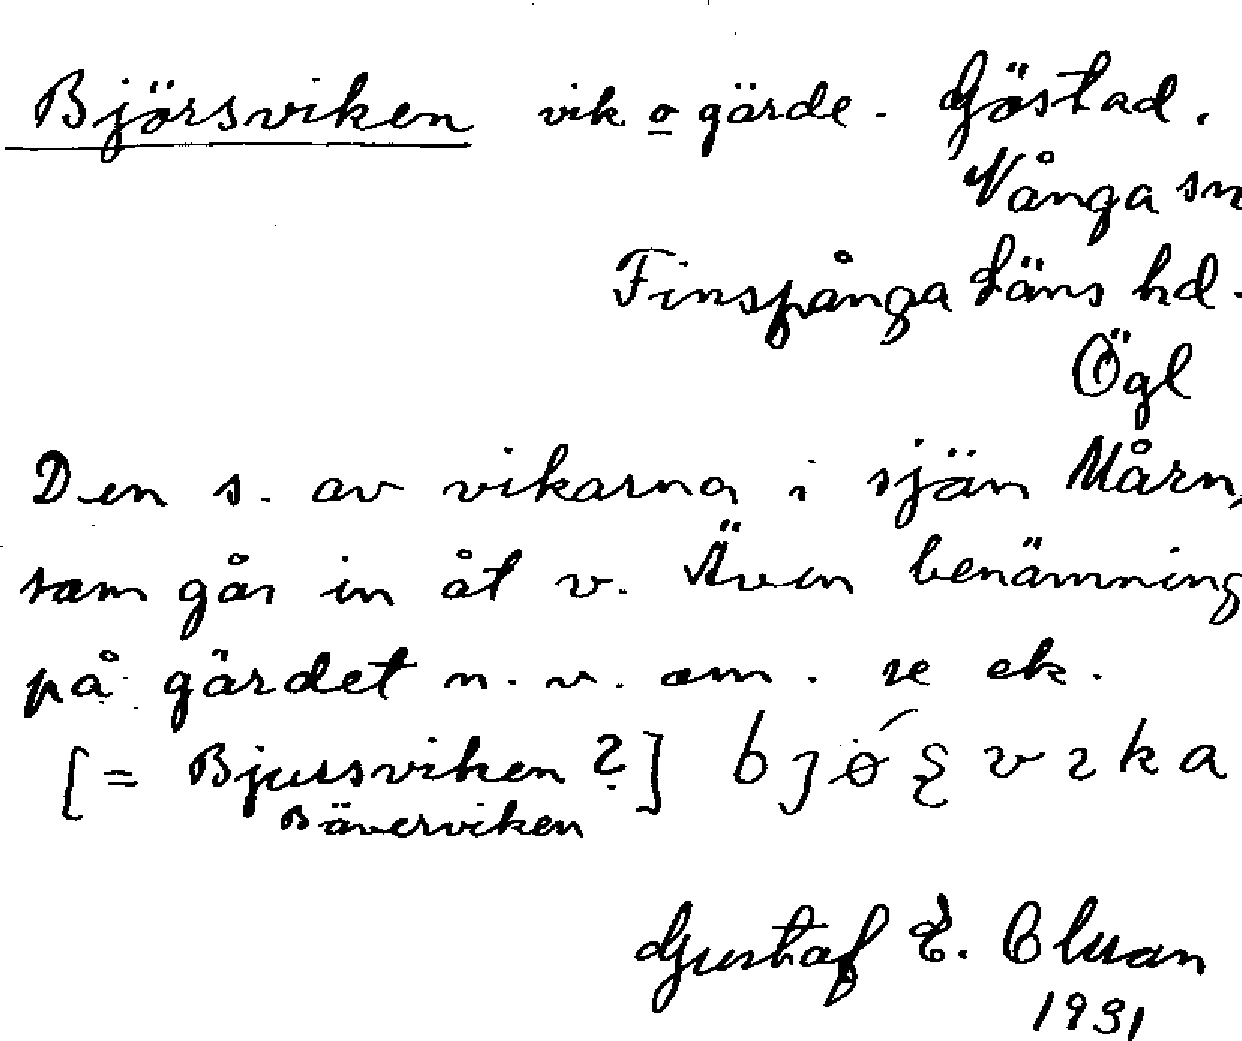 Björsviken vik o gärde. Göstad.
Vånga sn
Finspånga läns hd.
Ögl
Den s. av vikarna i sjön Mårn,
som går in åt v. Även benämning
på gärdet n. v. om. se ek.
[= Bjursviken?] bjøʂvɪka
Bäverviken
Gustaf E. Cluan
1931